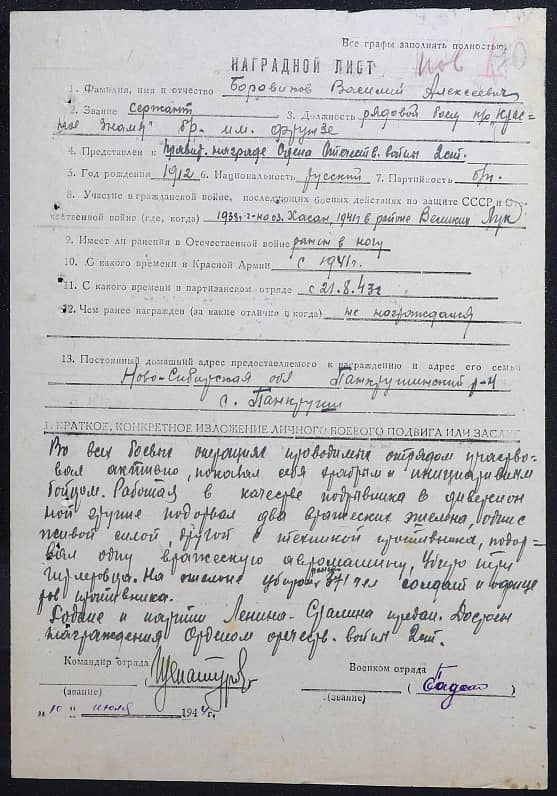 Все графы заполнять полностью.
НАГРАДНОЙ ЛИСТ
1. Фамилия, имя и отчество Боровиков Василий Алексеевич
2. Звание сержант 3. Должность рядовой боец п/о "Крас-
ное знамя" бр. им. Фрунзе
4. Представлен к правит. награде Ордена Отечеств. войны 2 ст.
5. Год рождения 1912 6. Национальность русский 7. Партийность б/п.
8. Участие в гражданской войне, последующих боевых действиях по защите СССР и От-
ечественной войне (где, когда) 1938 г. на оз. Хасан, 1941 г. в районе Великих Лук
9. Имеет ли ранения в Отечественной войне ранен в ногу
10. С какого времени в Красной Армии с 1941 г.
11. С какого времени в партизанском отряде с 21.8.43 г
12. Чем ранее награжден (за какие отличия и когда) не награждался
13. Постоянный домашний адрес предоставляемого к награждению и адрес его семьи
Ново-Сибирская обл Панкрушинский р-н
с. Панкруши
I. КРАТКОЕ, КОНКРЕТНОЕ ИЗЛОЖЕНИЕ ЛИЧНОГО БОЕВОГО ПОДВИГА ИЛИ ЗАСЛУГ
Во всех боевых операциях проводимых отрядом участво-
вал активно, показал себя храбрым и инициативным
бойцом. Работая в качестве подрывника в диверсион
ной группе подорвал два вражеских эшелона, один с
живой силой, другой с техникой противника, подор-
вал одну вражескую автомашину, убито три
гитлеровца. На эшелоне убито 371 чел солдат и офице
ров противника.
Родине и партии Ленина-Сталина предан. Достоин
награждения Орденом отечеств. войны 2 ст.
Командир отряда Военком отряда
(звание) (звание)
"10" июля 1944 г.